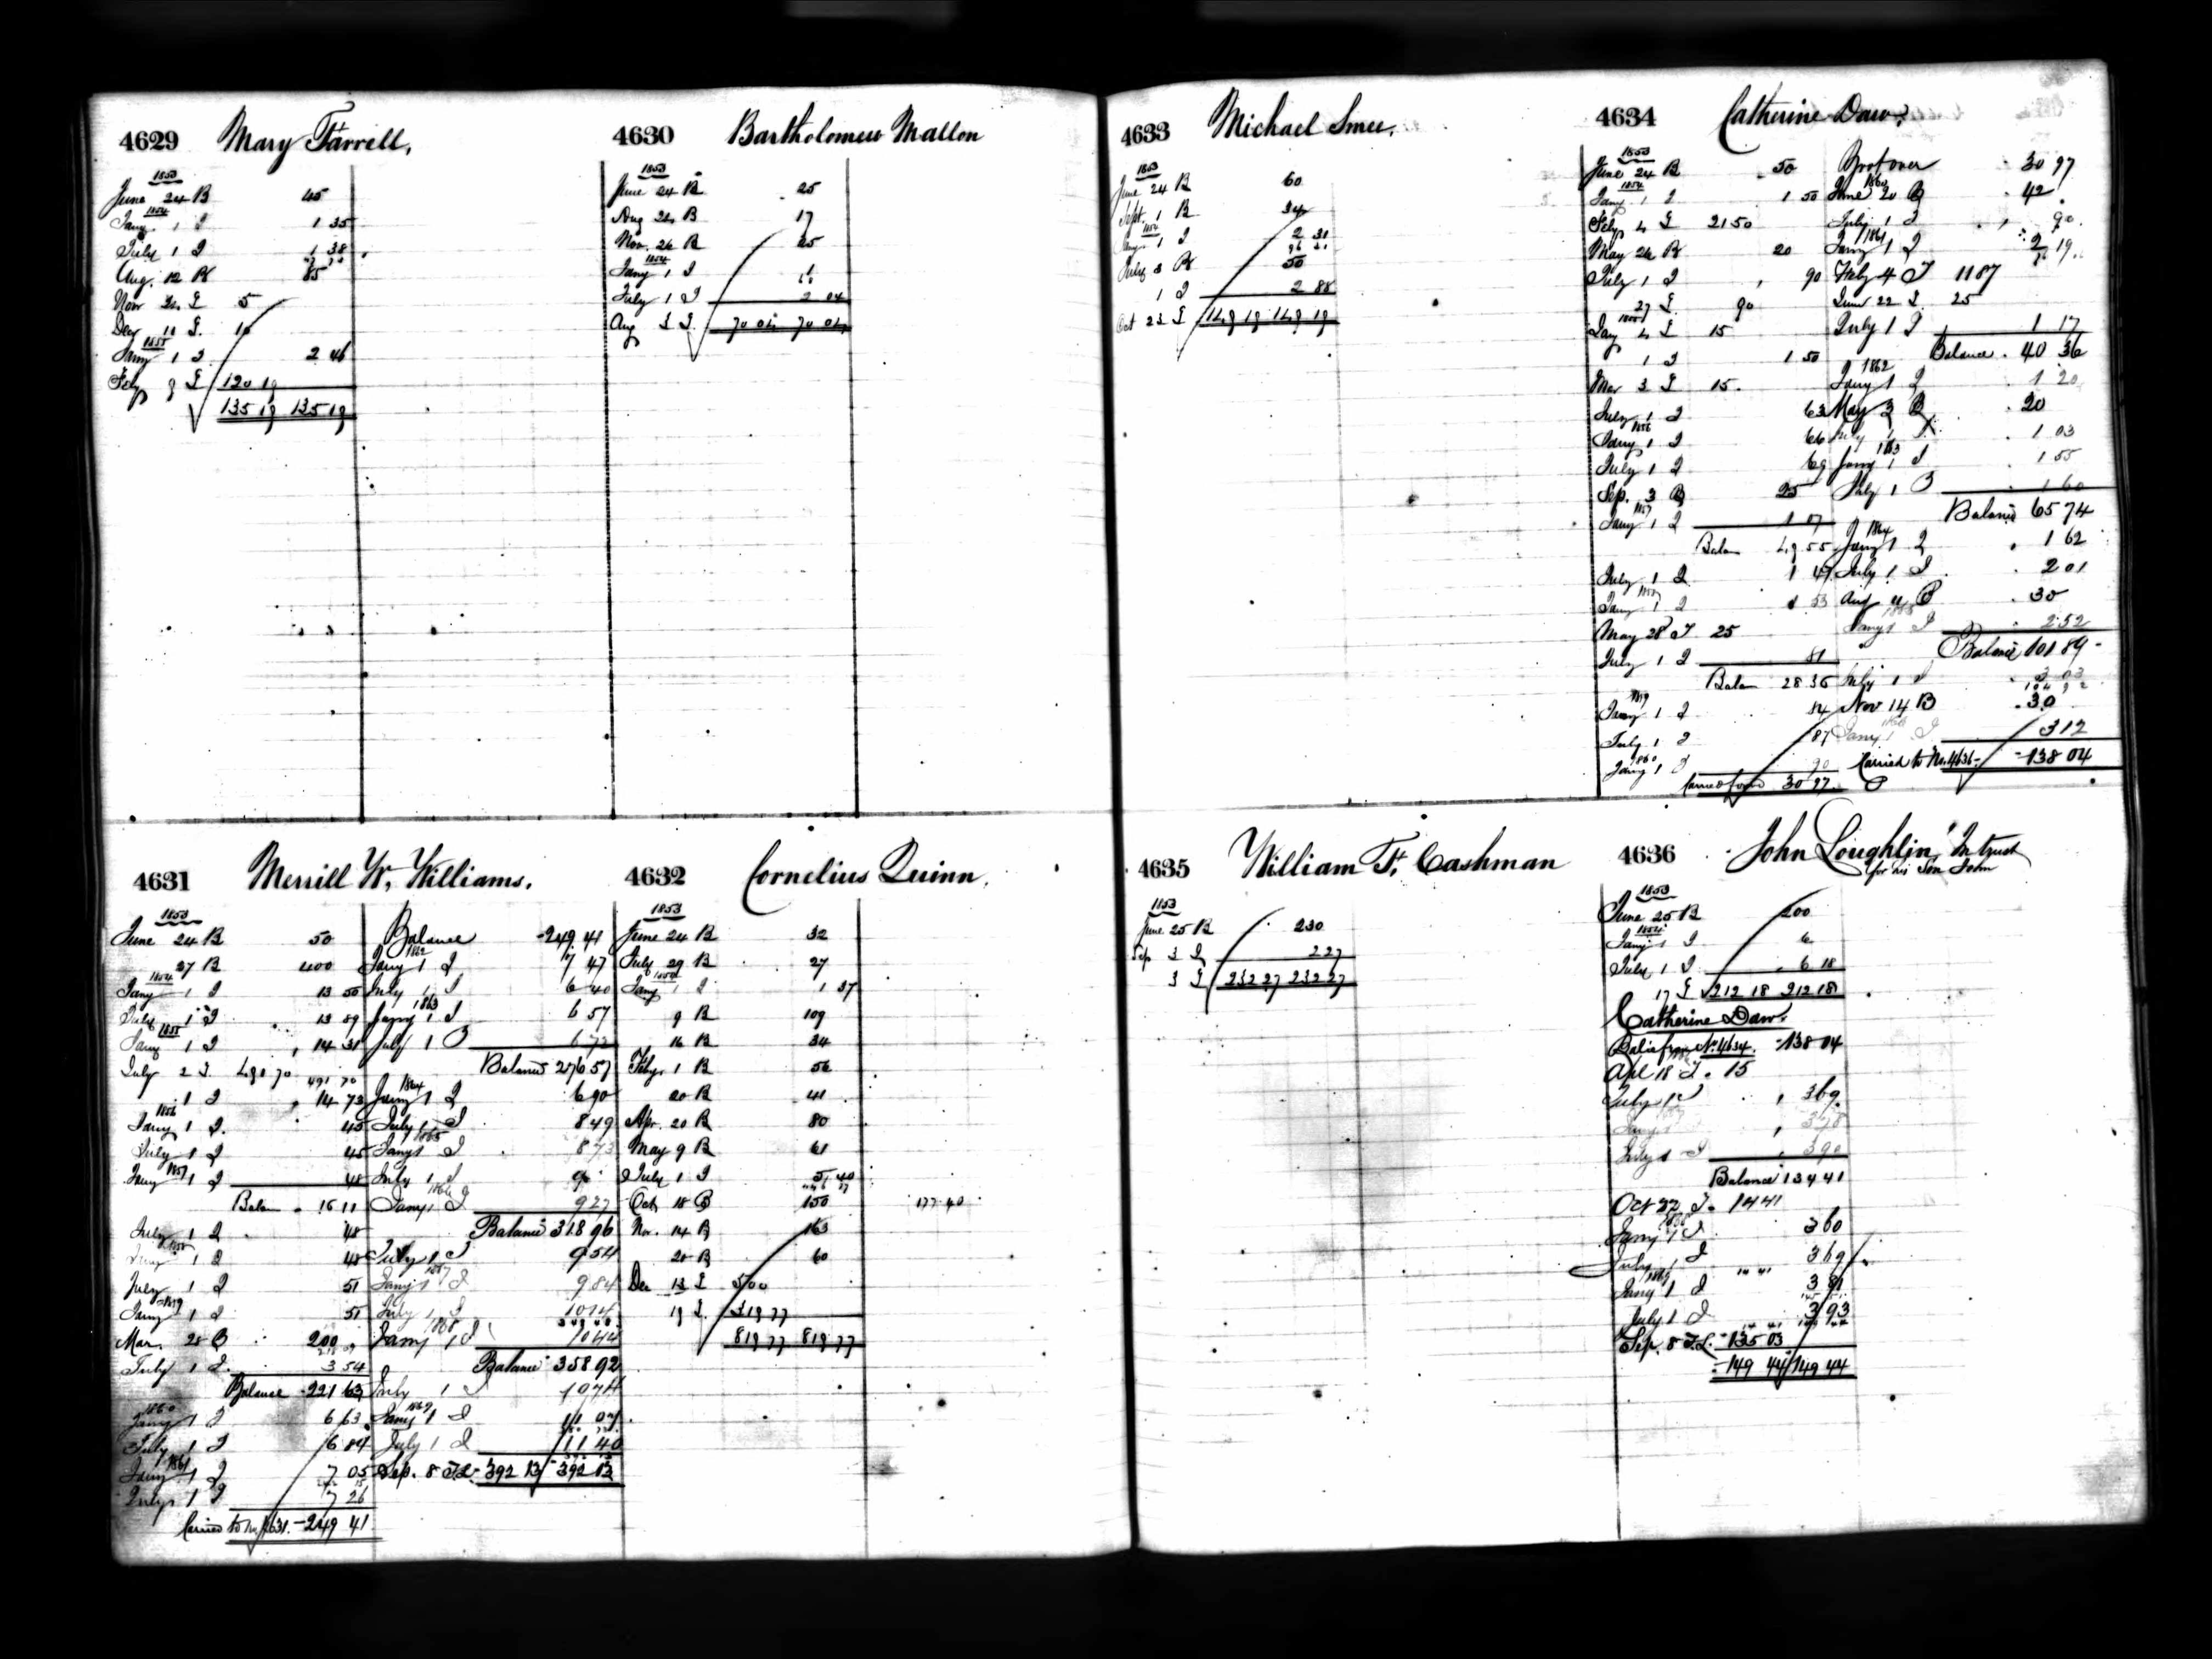 4629 Mary Farrell,
1853
June 24 B 45
1854
Jany 1 I 1 35
July 1 I 1 38
Aug. 12 B 85
Nov 24 L 5
Dec 11 L. 10
1855
Jany 1 I 2 46
Feby 9 L 120 19
135 19 135 19
4630 Bartholomew Mallon
1853
June 24 B 25
Aug 24 B 17
Nov. 26 B 25
1854
Jany 1 I 1
July 1 I 2 04
Aug 3 L. 70 04 70 04
4631 Merrill W. Williams.
1853
June 24 B 50
27 B 400
1854
Jany 1 I 13 50
July 1 I 13 89
1855
Jany 1 I 14 31
July 2 L. 491 70
491 70
1 I 14 73
1856
Jany 1 I. 45
July 1 I 45
1857
Jany 1 I 48
Balan 16 11
July 1 I 48
1858
Jany 1 I 48
July 1 I 51
1859
Jany 1 I 51
Mar. 28 B 200
July 1 I. 3 54
Balance 221 63
1860
Jany 1 I 6 63
July 1 I 6 84
1861
Jany 1 I 7 05
July 1 I 7 26
Carried to No. 4631. 249 41
Balance 249 41
1862
Jany 1 I 7 47
July 1 I 6 40
1863
Jany 1 I 6 57
July 1 I 6 72
Balance 276 57
1864
Jany 1 I 6 90
July 1 I 8 49
1865
Jany 1 I 8 73
July 1 I 9
1866
Jany 1 I 9 27
Balance 318 96
July 1 I 9 54
1867
Jany 1 I 9 84
July 1 I 10 14
1868
Jany 1 I 10 44
Balance 358 92
July 1 I 10 74
1869
Jany 1 I 11 07
July 1 I 11 40
Sep. 8 T.L. 392 13 392 13
4632 Cornelius Quinn,
1853
June 24 B 32
July 29 B 27
1854
Jany 1 I 1 37
9 B 109
16 B 34
Feby. 1 B 56
20 B 41
Apr. 20 B 80
May 9 B 61
July 1 I 5 40
Oct 18 B 150 177 40
Nov. 14 B 163
28 B 60
Dec 13 L 500
19 L. 319 77
819 77 819 77
4633 Michael Smee.
1853
June 24 B 60
Sept. 1 B 34
1854
Jany 1 I 2 31
96 31
July 3 B 50
1 I 2 88
Oct 23 L 149 19 149 19
4634 Catherine Daw.
1853
June 24 B 50
1854
Jany 1 I 1 50
Feby 4 L 21 50
May 26 B 20
July 1 I 90
27 L 90
1855
Jany 4 L 15
1 I 1 50
Mar 3 L 15.
July 1 I 63
1856
Jany 1 I 66
July 1 I 69
Sep. 3 B 25
1857
Jany 1 I 1 17
Balan 49 55
July 1 I 1 47
Jany 1 I 1 53
May 28 T 25
July 1 I 81
Balan 28 36
1859
Jany 1 I 84
July 1 I 87
1860
Jany 1 I 90
Carried forwd 30 97
Brot over 30 97
1860
June 20 B 42
July 1 I 90
1861
Jany 1 I 2 19
Feby 4 T 11 87
June 22 L 25
July 1 I 1 17
Balance 40 36
1862
Jany 1 I 1 20
May 3 B 20
July 1 I 1 03
1863
Jany 1 I 1 55
July 1 I 1 60
Balance 65 74
1864
Jany 1 I 1 62
July 1 I 2 01
Aug 4 B 30
1865
Jany 1 I 2 52
Balance 101 89
July 1 I 3 03
104 92
Nov 14 B 30
1866
Jany 1 I 3 12
Carried to No. 4636 138 04
4635 William F. Cashman
1853
June 25 B 230
Sep 3 I 2 27
3 L 232 27 232 27
4636 John Loughlin, "In trust
for his Son John
1853
June 25 B 200
1854
Jany 1 I 6
July 1 I 6 18
17 L 212 18 212 18
Catherine Daw.
Bal. from No. 4634. 138 04
Apl 18 T. 15
July 1 I 3 69
Jany 1 3 78
July 1 I 3 90
Balance 134 41
Oct 22 T. 14 41
1868
Jany 1 I 3 60
July 1 I 3 69
1869
Jany 1 I 3 81
July 1 I 3 93
Sep. 8 T.L. 135 03
149 44 149 44